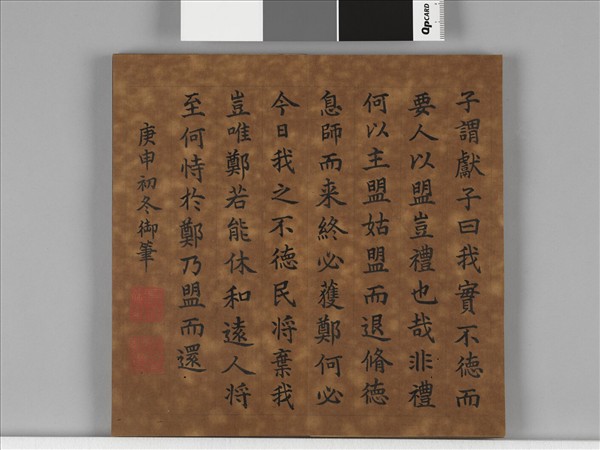 子謂獻子曰我實不德而
要人以盟豈禮也哉非禮
何以主盟姑盟而退脩德
息師而来終必獲鄭何必
今日我之不德民将棄我
豈唯鄭若能休和遠人将
至何恃於鄭乃盟而還
庚申初冬御筆
QpCARD